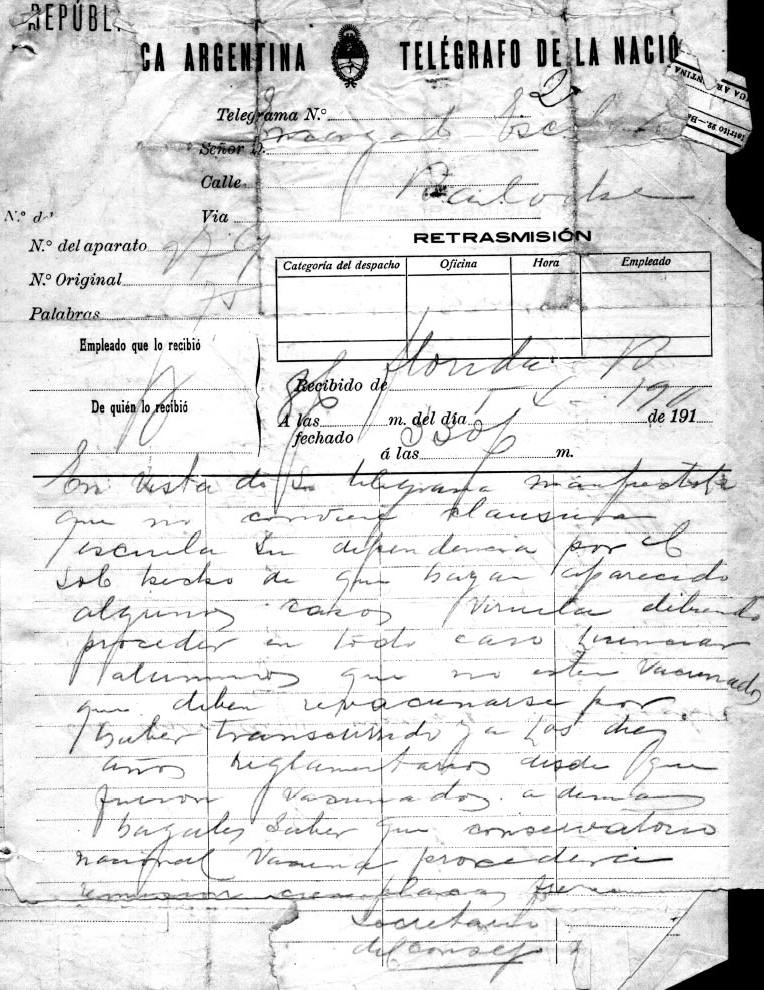 REPÚBLICA ARGENTINA TELÉGRAFO DE LA NACIÓ
Telegrama N.º 2
Señor D. Encargado Escuela
Calle
Bariloche
Via
N.º de
N.º del aparato
N.º Original
Palabras 75
RETRASMISIÓN
Categoría del despacho Oficina Hora Empleado
Empleado que lo recibió
De quién lo recibió
Recibido de Florida
A las m. del día de 191
fechado á las m.
En vista de su telegrama manifiestole
que no conviene clausura
escuela su dependencia por el
solo hecho de que hayan aparecido
algunos casos viruela debiendo
proceder en todo caso
alumnos que no esten vacunados
que deben revacunarse por
haber transcurrido ya los diez
años reglamentarios desde que
fueron vacunados. ademas
hagales saber que conservatorio
nacional vacuna procedera
remision
secretario
del consejo